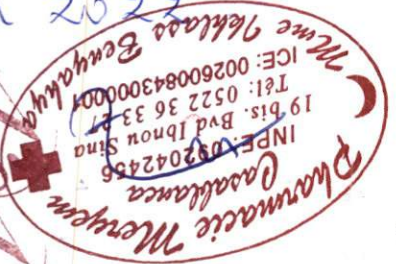 2022
Pharmacie Meryem
Casablanca
INPE: 092042456
19 bis. Bvd Ibnou Sina
Tél: 0522 36 33
ICE: 002600843000001
Mme Ikhlass Benyahya